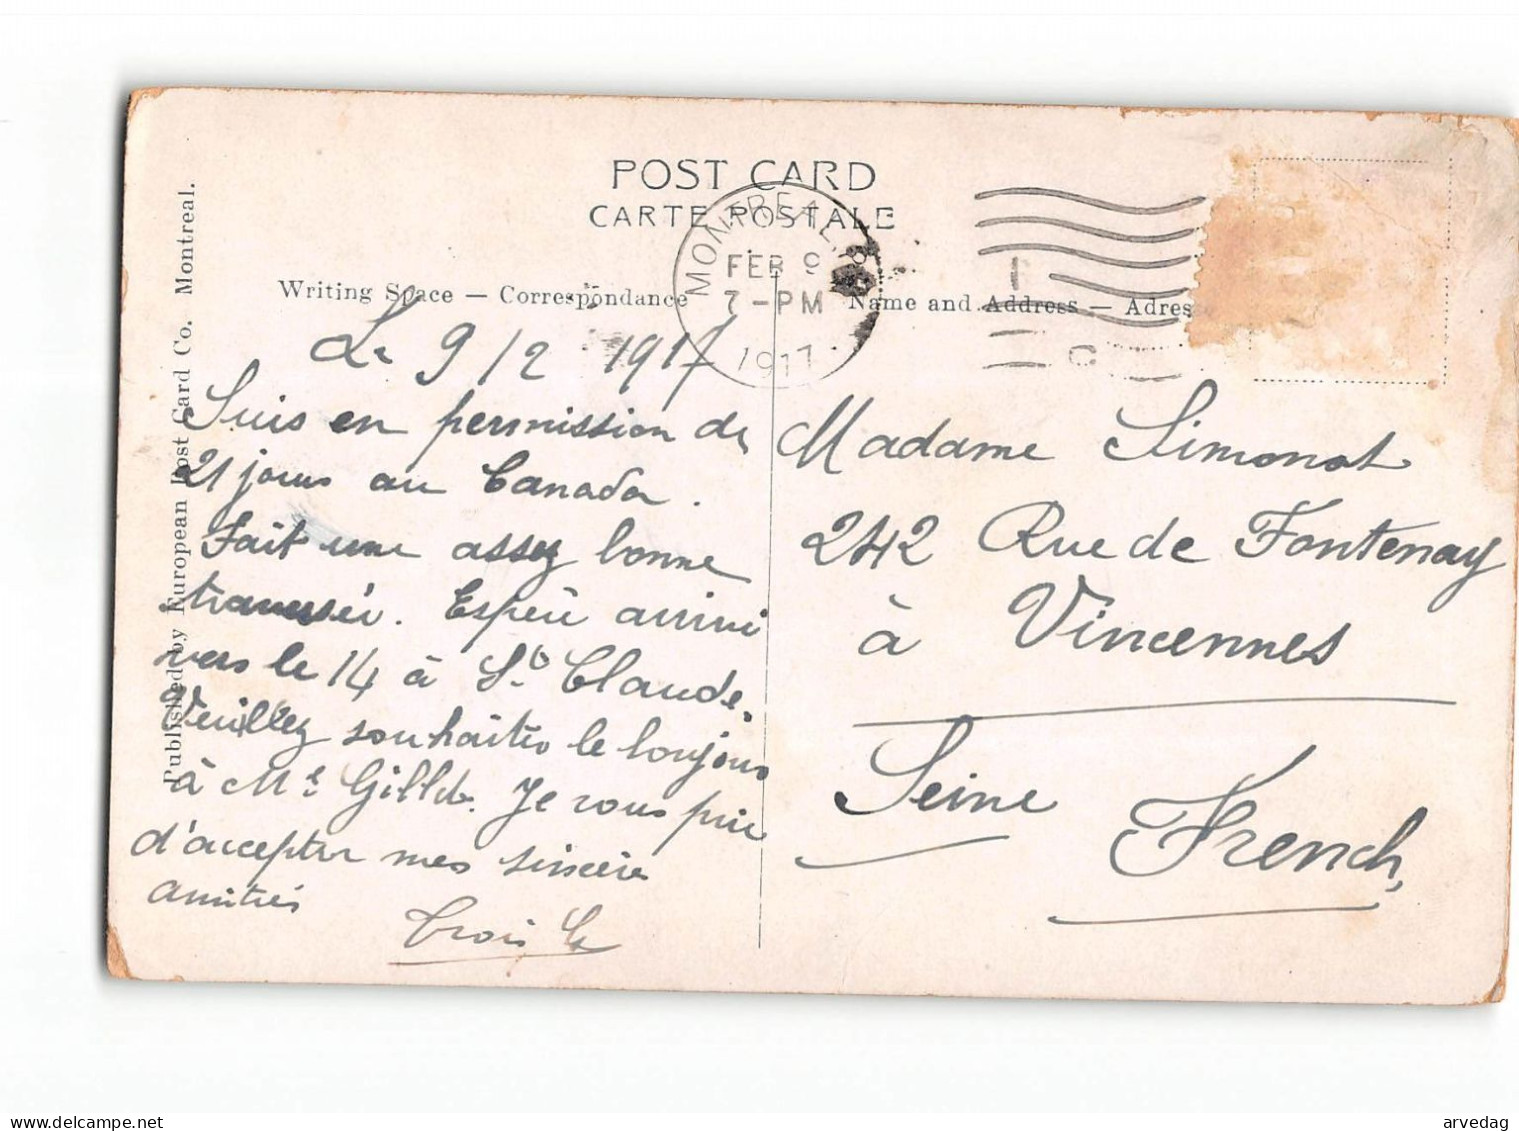 POST CARD
CARTE POSTALE
MONTREAL
FEB 9
7-PM
1917
Writing Space — Correspondance
Name and Address — Adres
Published by European Post Card Co. Montreal.
Le 9/2 1917
Suis en permission de
21 jours au Canada.
Fait une assez bonne
traversée. Espère arriver
vers le 14 à St Claude.
Veuillez souhaiter le bonjour
à Mr Gillet. Je vous prie
d'accepter mes sincères
amitiés
Madame Simonot
242 Rue de Fontenay
à Vincennes
Seine
French
arvedag